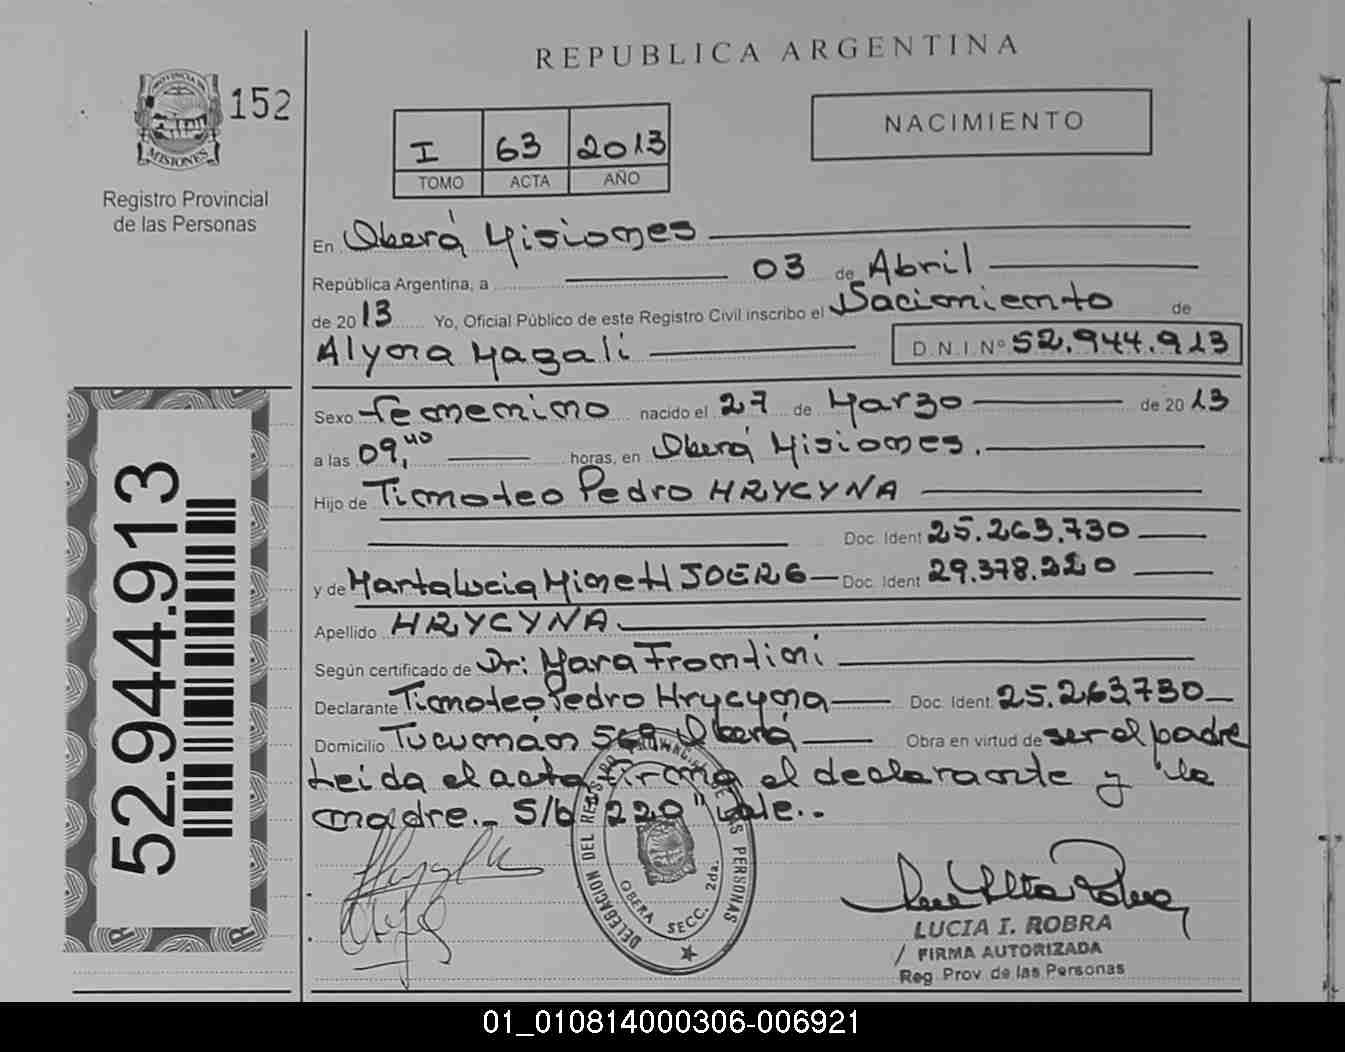 REPUBLICA ARGENTINA
PROVINCIA DE
MISIONES
152
Registro Provincial
de las Personas
I 63 2013
TOMO ACTA AÑO
NACIMIENTO
En Oberá Misiones
República Argentina, a 03 de Abril
de 2013 Yo, Oficial Público de este Registro Civil inscribo el Nacimiento de
Alyna Magali D.N.I. Nº 52.944.913
Sexo femenino nacido el 27 de Marzo de 2013
a las 09,40 horas, en Oberá Misiones.
Hijo de Timoteo Pedro HRYCYNA
Doc. Ident 25.263.730
y de Marta Lucia Mine H JOERG Doc. Ident 29.378.220
Apellido HRYCYNA.
Según certificado de Dr: Mara Frontini
Declarante Timoteo Pedro Hrycyna Doc. Ident. 25.263.730
Domicilio Tucumán Oberá Obra en virtud de ser el padre
Leida el acta firma el declarante y la
madre.- S/b "220" Vale.-
DELEGACION DEL REGISTRO PROVINCIAL DE LAS PERSONAS
OBERA SECC. 2da.
LUCIA I. ROBRA
FIRMA AUTORIZADA
Reg. Prov. de las Personas
52.944.913
01_010814000306-006921